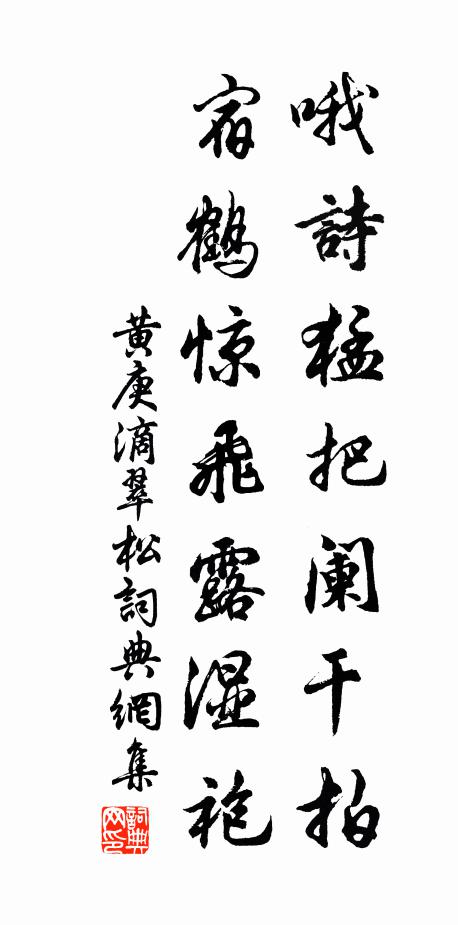 哦詩猛把阑干拍
宿鶴惊飛露濕袍
黄庚滴翠松詞典網集
詞典网印